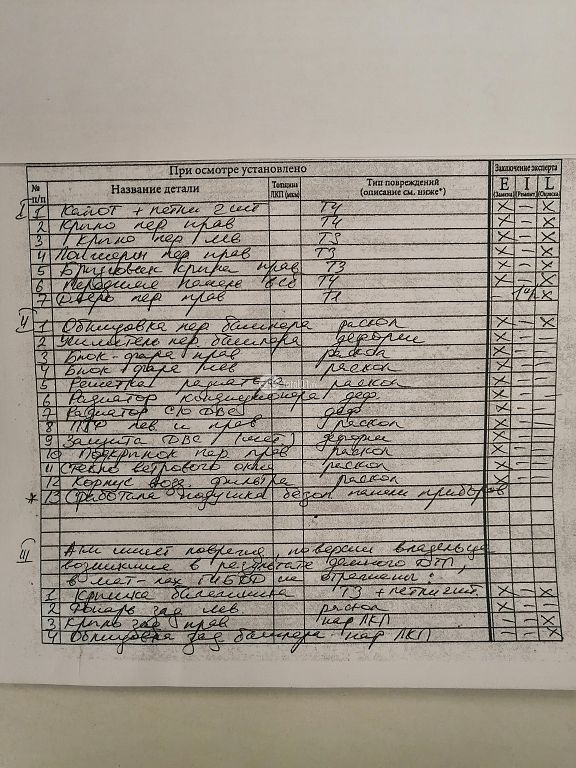 При осмотре установлено Заключение эксперта
№ п/п Название детали Толщина ЛКП (мкм) Тип повреждений (описание см. ниже*) E (Замена) I (Ремонт) L (Окраска)
I 1 Капот + петли 2 шт T4 X - X
2 Крыло пер прав T4 X - X
3 Крыло пер лев T3 X - X
4 Лонжерон пер прав T3 X - X
5 Брызговик крыла прав T3 X - X
6 Передняя панель в сб T4 X - X
7 Дверь пер прав T1 - X
II 1 Облицовка пер бампера раскол X - X
2 Усилитель пер. бампера деформ X - -
3 Блок-фара прав раскол X - -
4 Блок фара лев раскол X - -
5 Решетка радиатора раскол X - -
6 Радиатор кондиционера деф X - -
7 Радиатор С/О ДВС деф X - -
8 ПТФ лев и прав раскол X - -
9 Защита ДВС деформ X - -
10 Подкрылок пер прав раскол X - -
11 Стекло ветрового окна раскол X - -
12 Корпус возд. фильтра раскол X - -
* 13 Сработала подушка безоп панели приборов
III А/м имеет повреждения, владельца
возникшие в результате данного ДТП,
в мат-лах ГИБДД не отражены:
1 Крышка багажника T3 + петли X - X
2 Фонарь зад лев раскол X - -
3 Крыло зад прав нар ЛКП - - X
4 Облицовка зад бампера нар ЛКП - - X